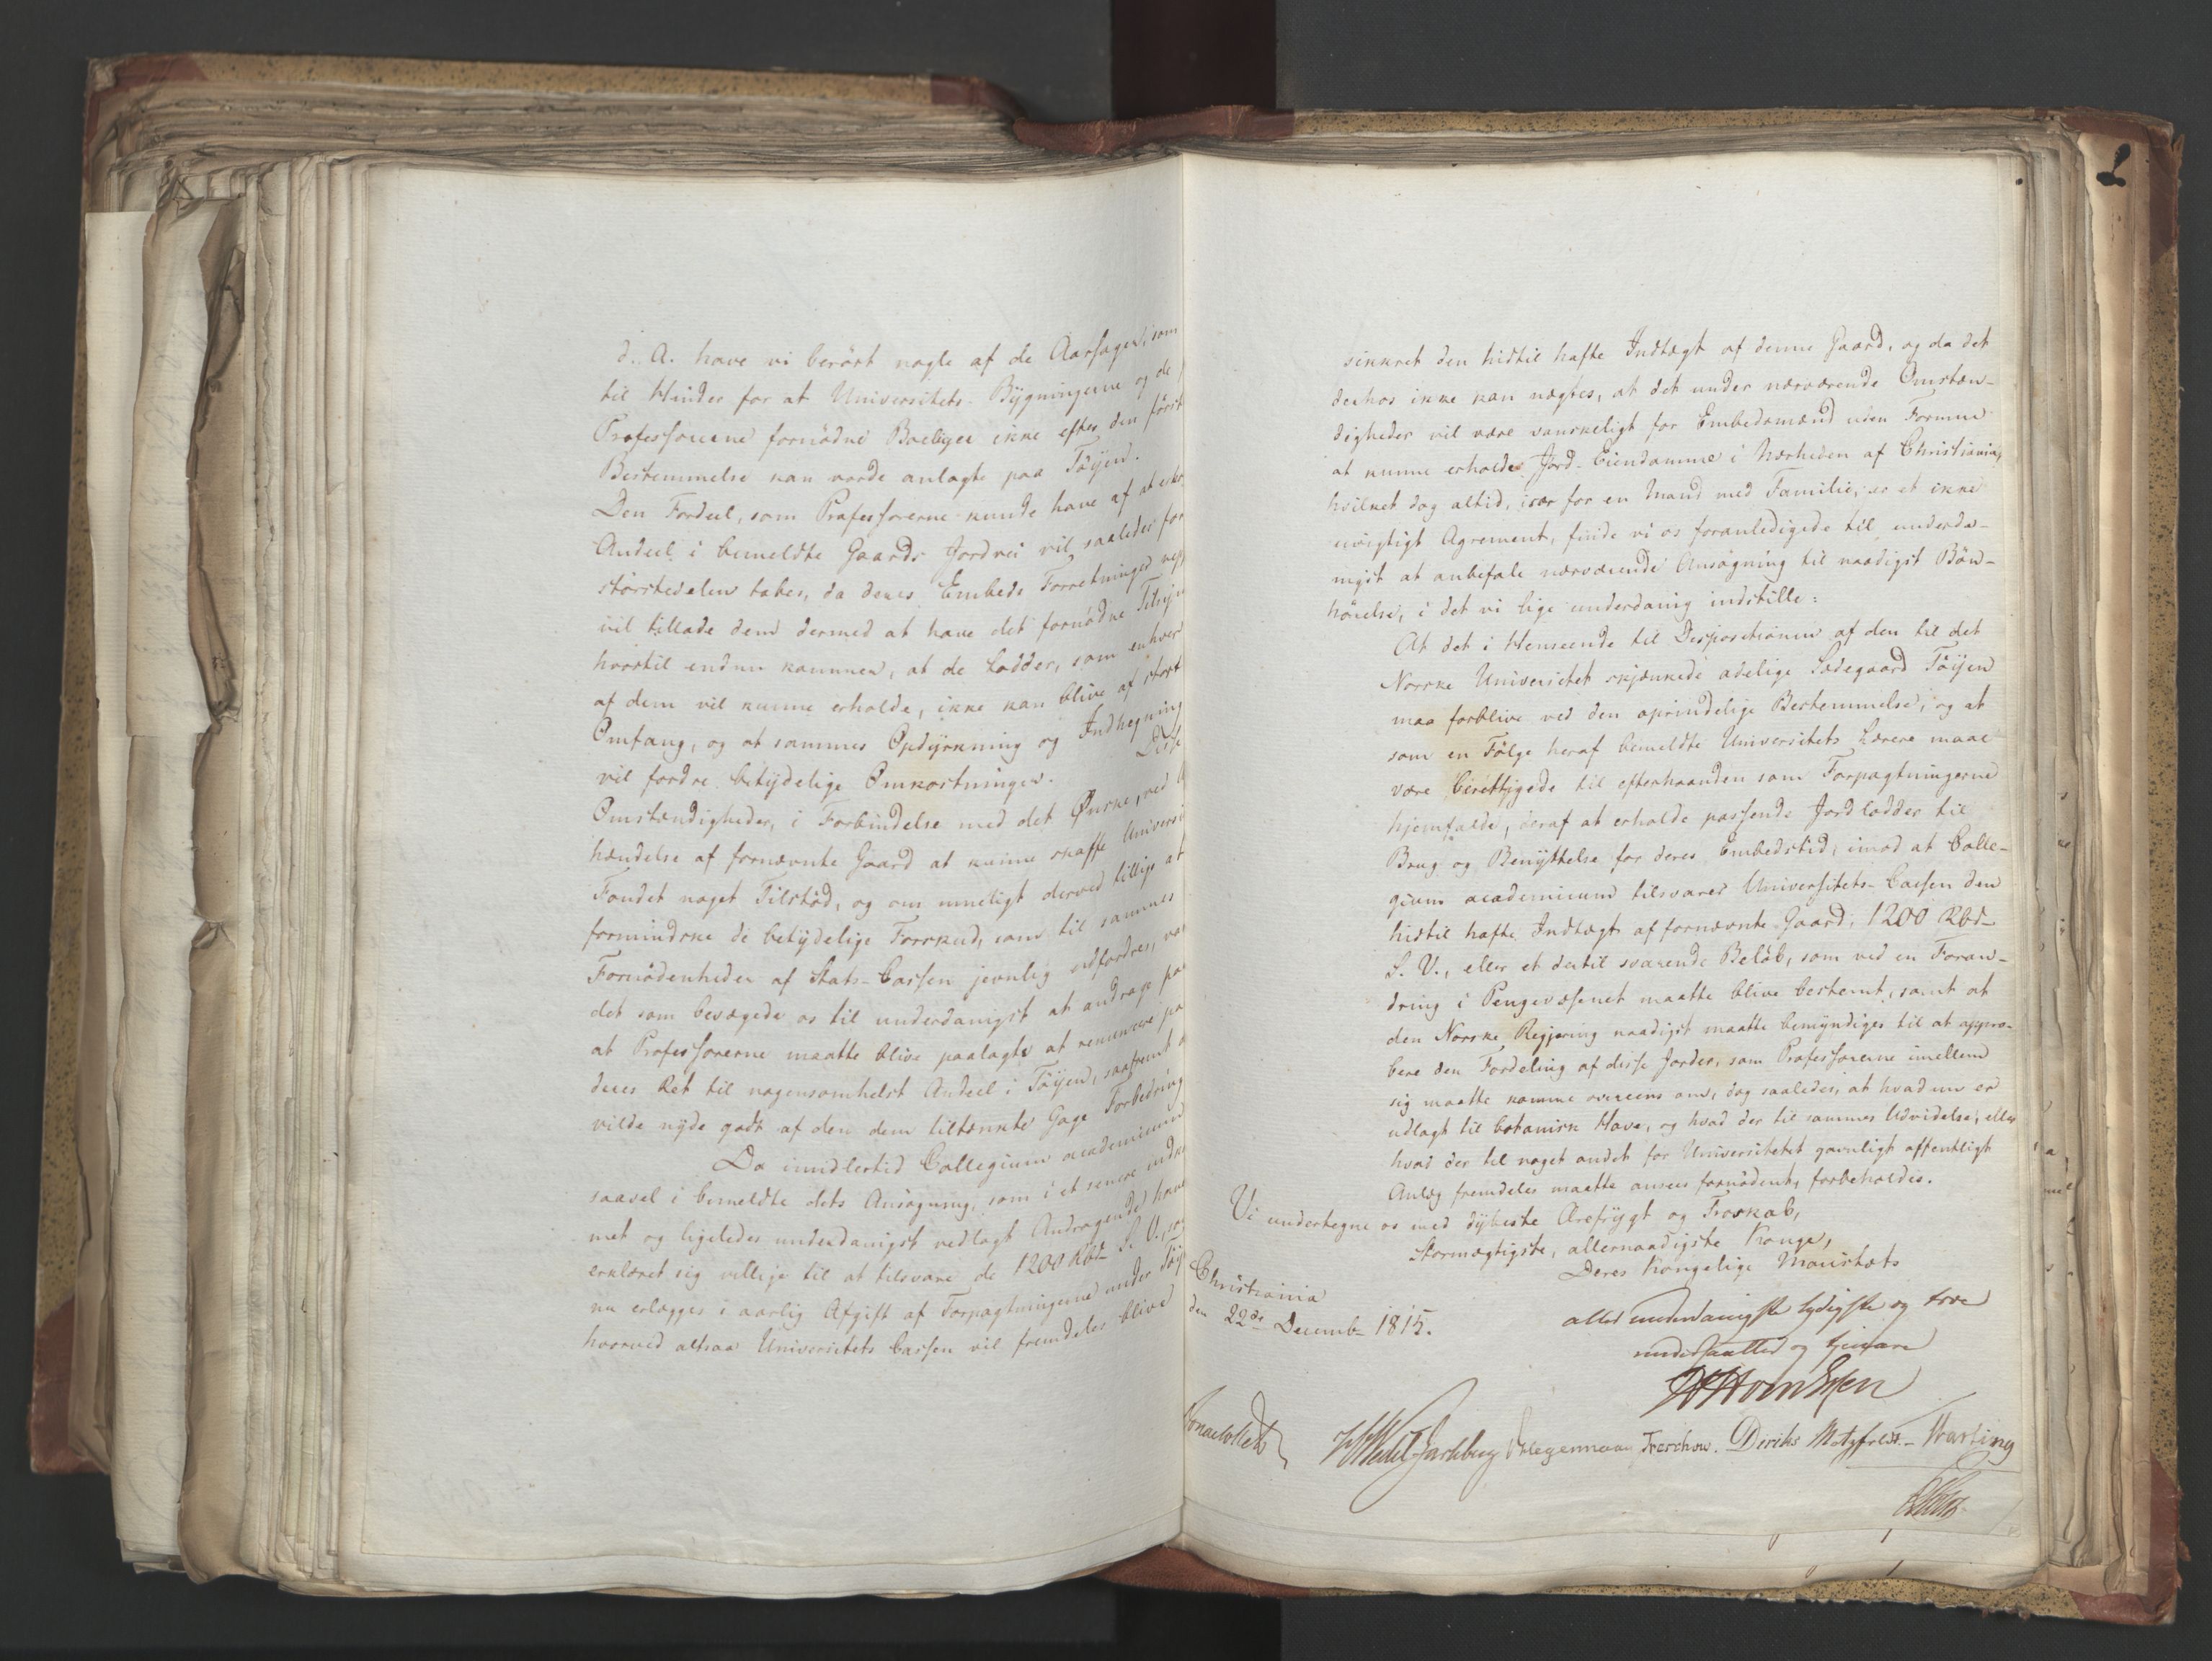 d. A. have vi berört nogle af de Aarsager, som
til Hinder for at Universitets-Bygningerne og de
Professorerne fornödne Boeliger ikke efter den först
Bestemmelse kan vorde anlagte paa Töÿen.
Den Fordeel, som Professorerne kunde have af at
Andeel i bemeldte Gaards Jordvei vil saaledes for
störstedelen tabes, da deres Embeds Forretninger
vil tillade dem dermed at have det fornödne Tilsÿn
hvortil endnu kommer, at de Lodder, som enhver
af dem vil kunne erholde, ikke kan blive af stort
Omfang, og at sammes Opdÿrkning og Indhegning
vil fordre betÿdelige Omkostninger. Disse
Omstændigheder, i Forbindelse med det Ønske, ved
hændelse af fornævnte Gaard at kunne skaffe Universi
Fondet noget Tilstöd, og om mueligt derved tillige at
formindske de betÿdelige Forskud, som til sammes
Fornödenheder af Stats-Cassen jevnlig udfordres, var
det som bevægede os til underdanigst at andrage paa
at Professorerne maatte blive paalagte at renuncere paa
deres Ret til nogensomhelst Andeel i Töÿen, saafremt
vilde nÿde godt af den dem tiltænkte Gage Forbedring
Da imidlertid Collegium academicum
saavel i bemeldte dets Ansögning, som i et senere indkom
met og ligeledes underdanigst vedlagt Andragende have
erklæret sig villige til at tilsvare de 1200 Rbd S. V., som
nu erlægges i aarlig Afgift af Forpagtningerne under Töÿ
hvorved altsaa Universitets Cassen vil fremdeles blive
sikkret den hidtil hafte Indtægt af denne Gaard, og da det
derhos ikke kan nægtes, at det under nærværende Omstæn-
digheder vil være vanskeligt for Embedsmænd uden Formue
at kunne erholde Jord-Eiendomme i Nærheden af Christiania,
hvilket dog altid, især for en Mand med Familie, er et ikke
uvigtigt Agrement, finde vi os foranledigede til underda-
nigst at anbefale nærværende Ansögning til naadigst Bön-
hörelse, i det vi lige underdanig indstille:
At det i Henseende til Dispositionen af den til det
Norske Universitet skjænkede adelige Sædegaard Töÿen
maa forblive ved den oprindelige Bestemmelse, og at
som en Fölge heraf bemeldte Universitets Lærere maae
være berettigede til efterhaanden som Forpagtningerne
hjemfalde, deraf at erholde passende Jordlodder til
Brug og Benÿttelse for deres Embedstid, imod at Colle-
gium academicum tilsvarer Universitets-Cassen den
hidtil hafte Indtægt af fornævnte Gaard, 1200 Rbd
S. V., eller et dertil svarende Belöb, som ved en Foran-
dring i Pengevæsenet maatte blive bestemt, samt at
den Norske Regjering naadigst maatte bemÿndiges til at appro-
bere den Fordeling af disse Jorder, som Professorerne imellem
sig maatte komme overeens om, dog saaledes, at hvad nu er
udlagt til botanisk Have, og hvad der til sammes Udvidelse, eller
hvad der til noget andet for Universitetet gavnligt offentligt
Anlæg fremdeles maatte ansees fornödent, forbeholdes.
Vi undertegne os med dÿbeste Ærefrÿgt og Troskab,
Stormægtigste, allernaadigste Konge,
Deres Kongelige Maiestæts
Christiania
den 22de Decembr 1815.
allerunderdanigste lydigste og troe
undersaatter og tjenere
Wedel Jarlsberg Hegermann Treschow. Diriks Motzfeldt